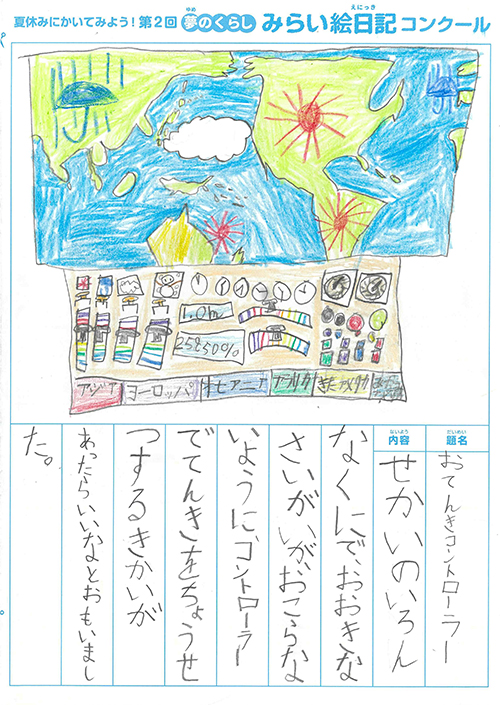 夏休みにかいてみよう！第2回 夢のくらし みらい絵日記コンクール
ゆめ
えにっき
1.0m
25℃50%
アジア
ヨーロッパ
オセアニア
アフリカ
きたアメリカ
だいめい
題名
おてんきコントローラー
ないよう
内容
せかいのいろん
なくにで、おおきな
さいがいが、おこらな
いようにコントローラー
でてんきをちょうせ
つするきかいが
あったらいいなとおもいまし
た。